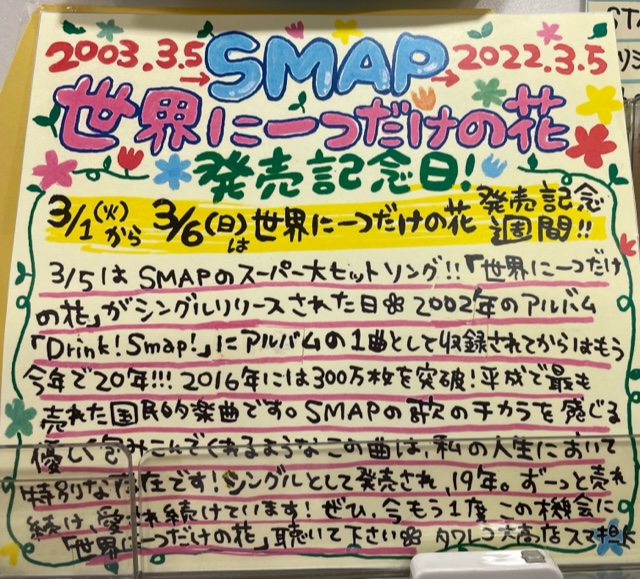 2003.3.5→SMAP→2022.3.5
世界に一つだけの花
発売記念日!
3/1(火)から 3/6(日)は世界に一つだけの花 発売記念週間!!
3/5はSMAPのスーパー大ヒットソング!!「世界に一つだけ
の花」がシングルリリースされた日 2002年のアルバム
「Drink!Smap!」にアルバムの1曲として収録されてからはもう
今年で20年!!! 2016年には300万枚を突破!平成で最も
売れた国民的楽曲です。SMAPの歌のチカラを感じる
優しく包みこんでくれるようなこの曲は、私の人生において
特別な存在です!シングルとして発売され、19年。ずーっと売れ
続け、愛され続けています!ぜひ、今もう1度この機会に
「世界に一つだけの花」聴いて下さい タワレコ大高店スマ担K
ST